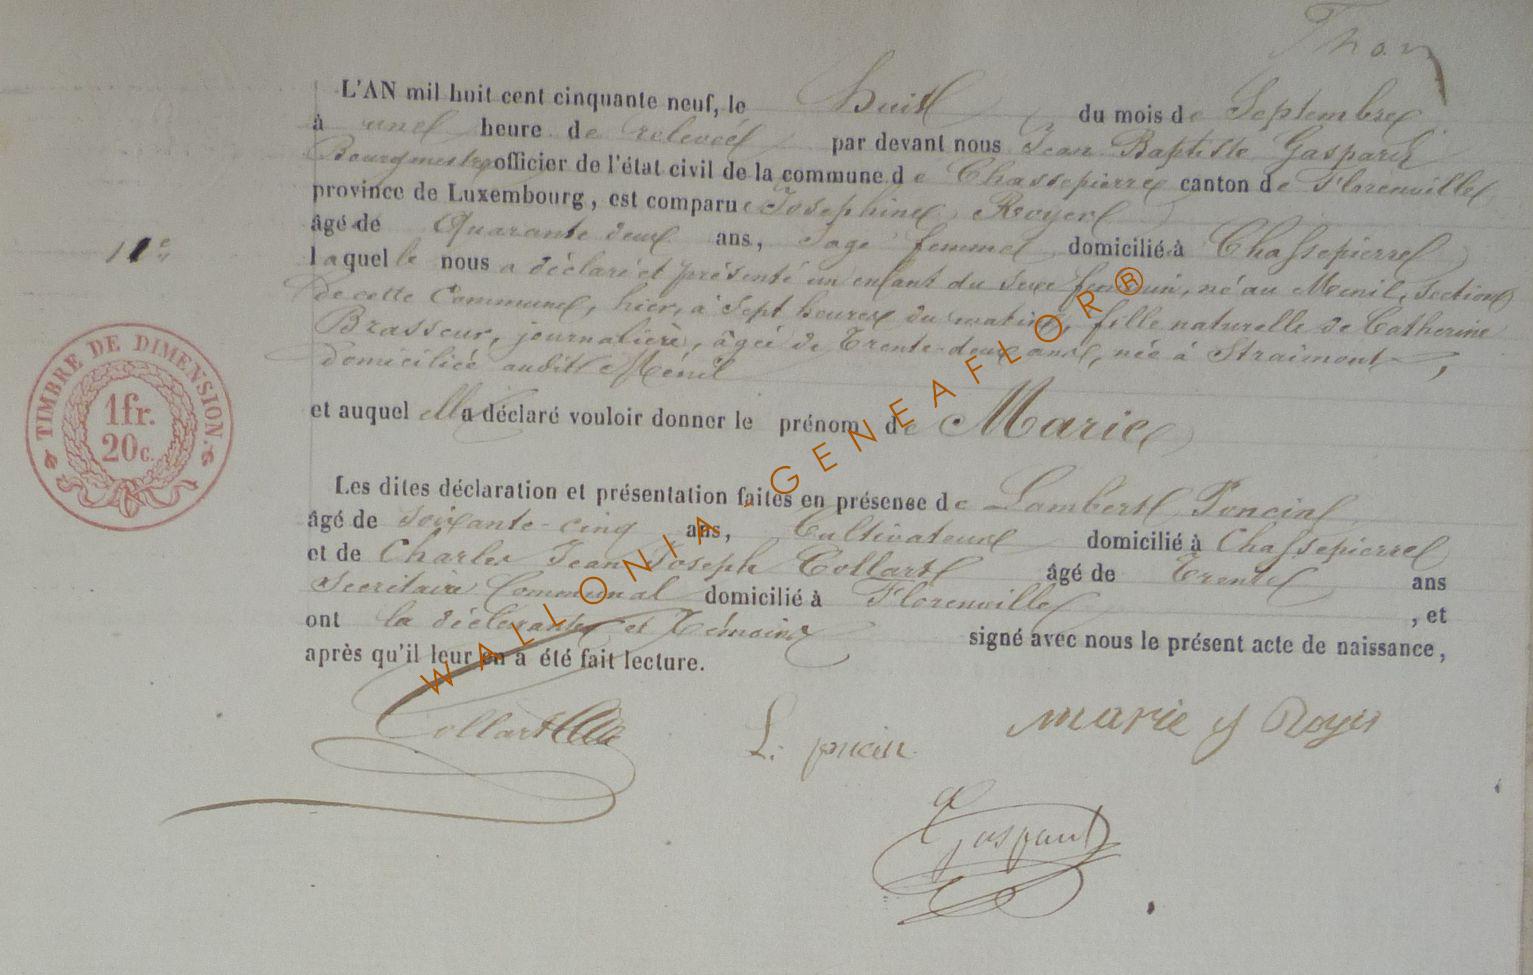 Thon
L'AN mil huit cent cinquante neuf, le huit du mois de Septembre
à une heure de relevée par devant nous Jean Baptiste Gaspard
Bourgmestre officier de l'état civil de la commune de Chassepierre canton de Florenville
province de Luxembourg, est comparue Josephine Royer
âgé de Quarante deux ans, Sage femme domicilié à Chassepierre
laquelle nous a déclaré et présenté un enfant du sexe féminin, né au Menil, section
de cette Commune, hier, à sept heures du matin, fille naturelle de Catherine
Brasseur, journalière, âgée de Trente-deux ans, née à Straimont,
domiciliée audit Ménil
11e
et auquel elle a déclaré vouloir donner le prénom de Marie
TIMBRE DE DIMENSION.
1fr.
20c.
Les dites déclaration et présentation faites en présense de Lambert Poncin
âgé de soixante-cinq ans, Cultivateur domicilié à Chassepierre
et de Charles Jean Joseph Collart âgé de Trente ans
Secrétaire Communal domicilié à Florenville, et
ont la déclarante et témoins signé avec nous le présent acte de naissance,
après qu'il leur en a été fait lecture.
Collart
L. poncin
marie j Royer
Gaspard
WALLONIA - GENEAFLOR®